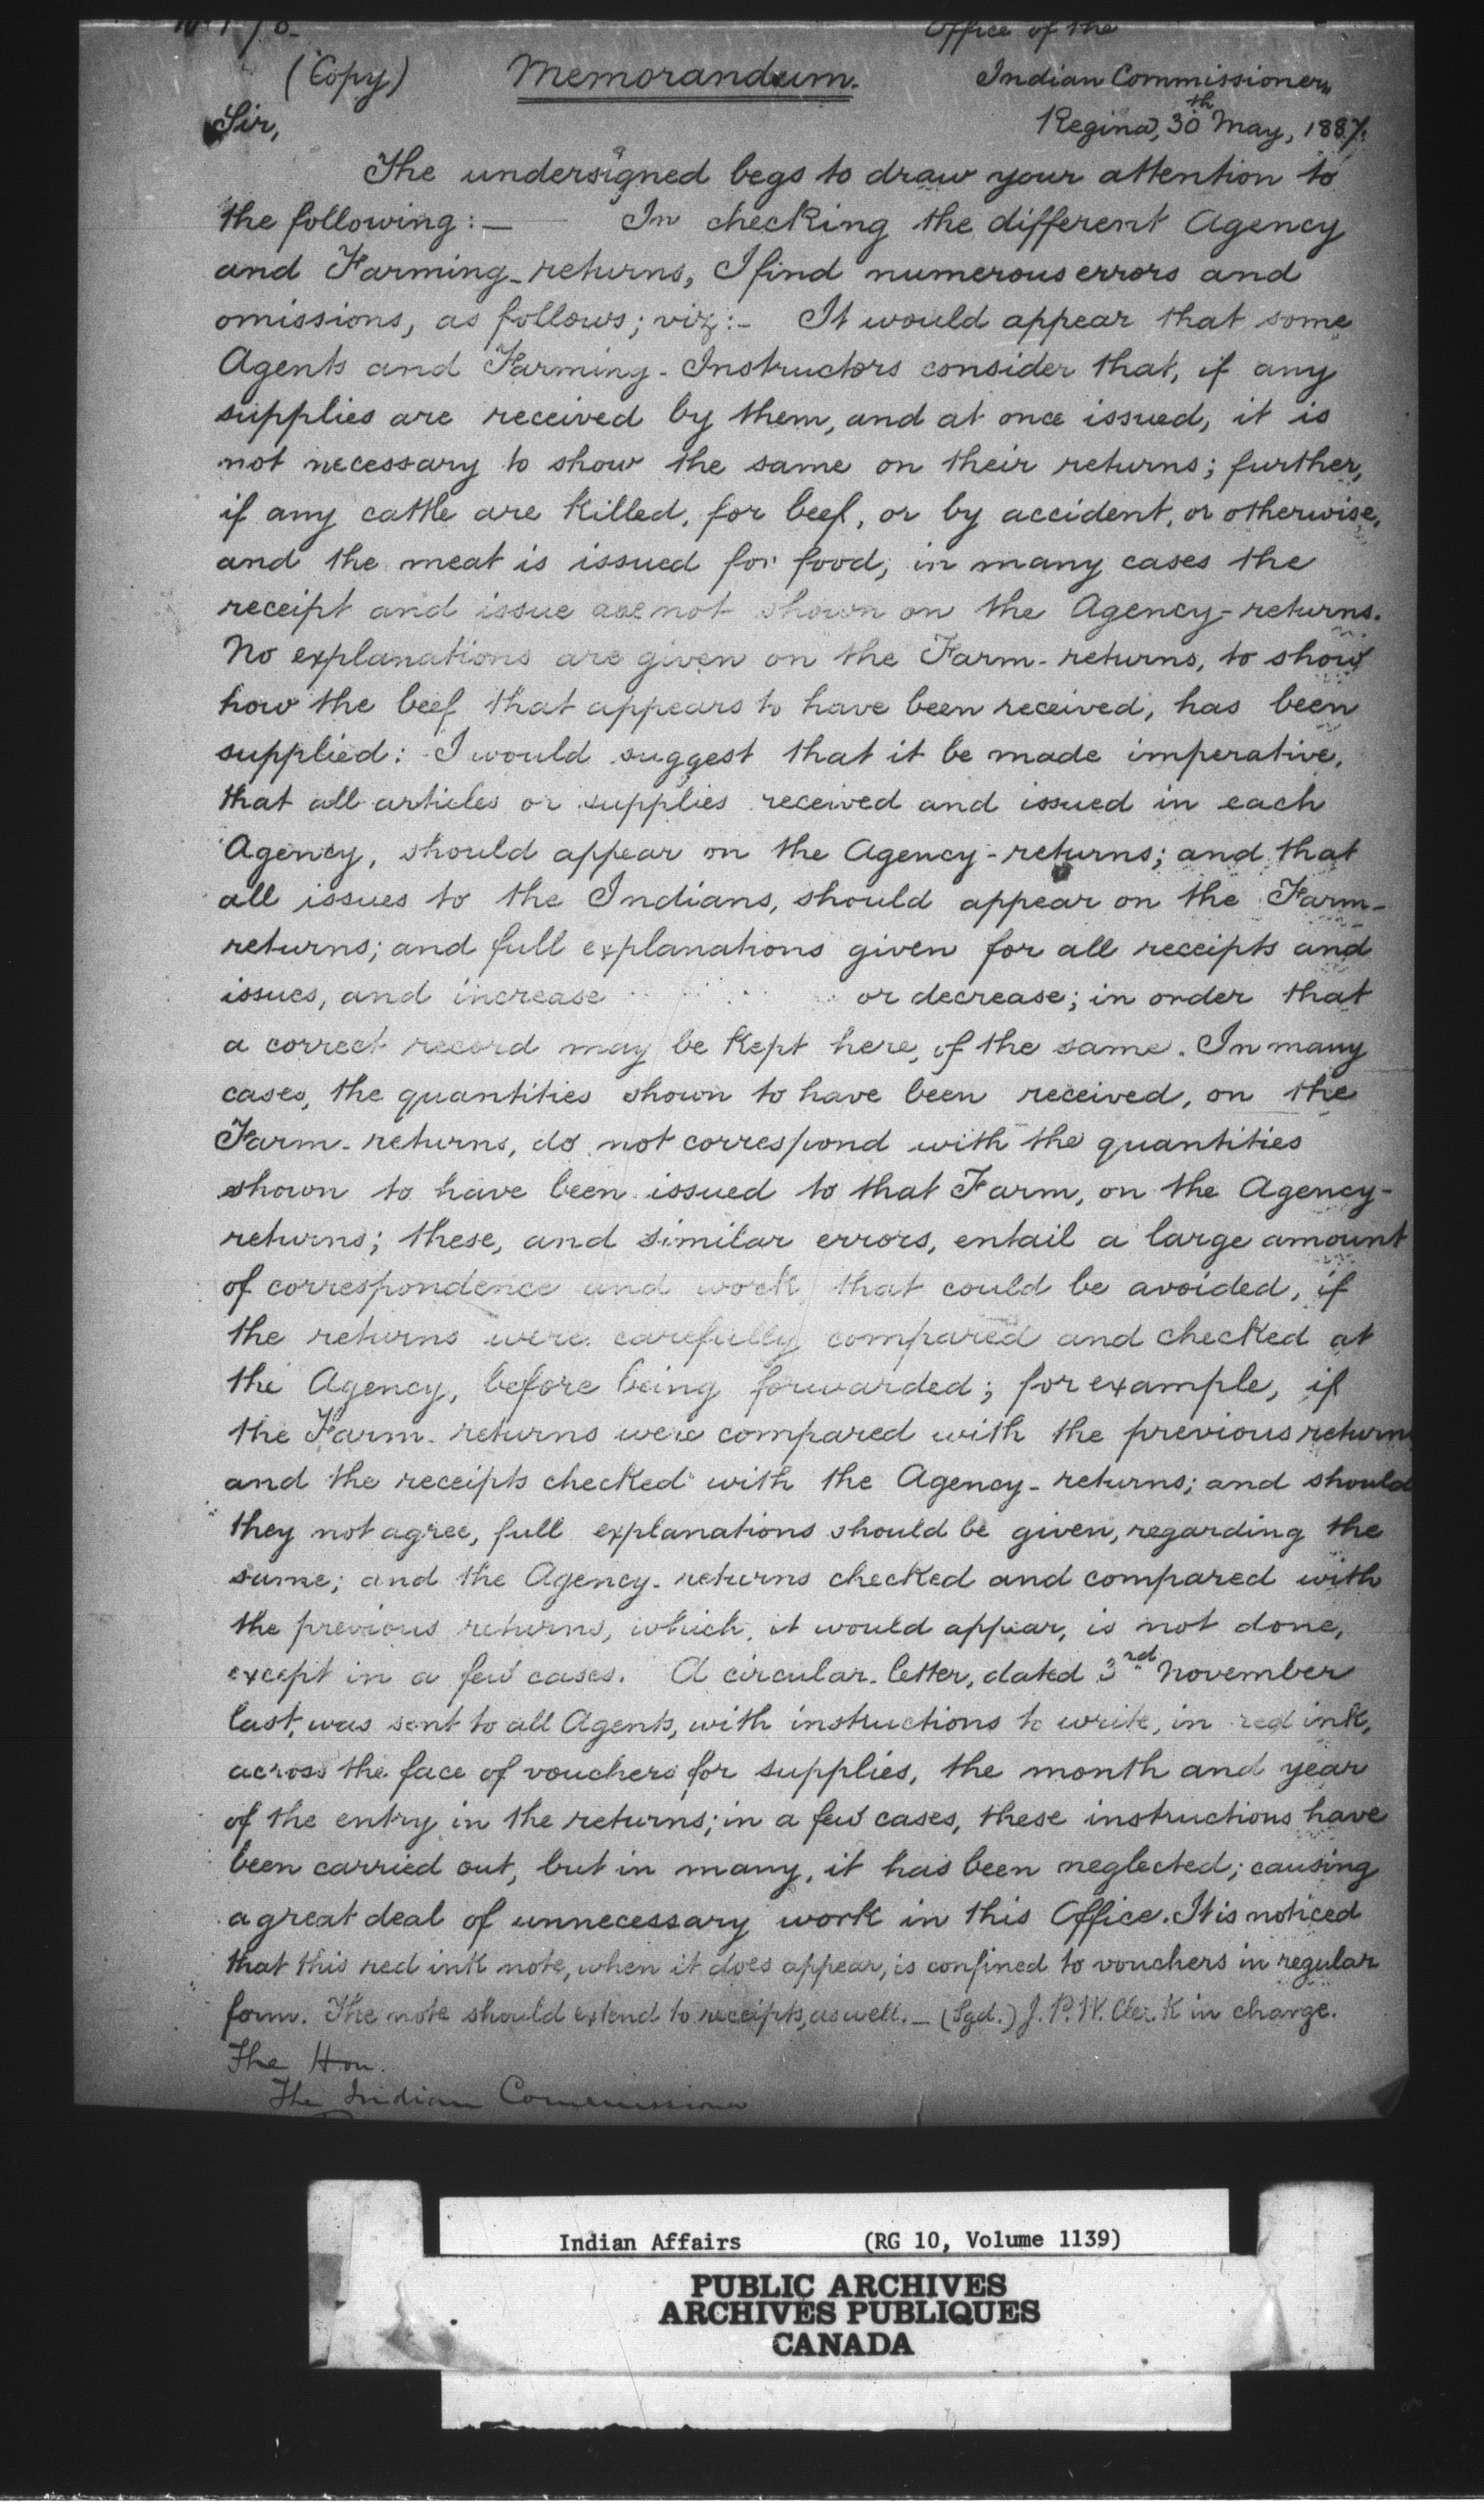 Office of the
(Copy) Memorandum. Indian Commissioner,
Sir, Regina, 30th May, 1887.
The undersigned begs to draw your attention to
the following:— In checking the different Agency
and Farming-returns, I find numerous errors and
omissions, as follows; viz:- It would appear that some
Agents and Farming-Instructors consider that, if any
supplies are received by them, and at once issued, it is
not necessary to show the same on their returns; further,
if any cattle are killed, for beef, or by accident, or otherwise,
and the meat is issued for food, in many cases the
receipt and issue are not shown on the Agency-returns.
No explanations are given on the Farm-returns, to show
how the beef that appears to have been received, has been
supplied: I would suggest that it be made imperative,
that all articles or supplies received and issued in each
Agency, should appear on the Agency-returns; and that
all issues to the Indians, should appear on the Farm-
returns; and full explanations given for all receipts and
issues, and increase or decrease; in order that
a correct record may be kept here, of the same. In many
cases, the quantities shown to have been received, on the
Farm-returns, do not correspond with the quantities
shown to have been issued to that Farm, on the Agency-
returns; these, and similar errors, entail a large amount
of correspondence and work that could be avoided, if
the returns were carefully compared and checked at
the Agency, before being forwarded; for example, if
the Farm-returns were compared with the previous return
and the receipts checked with the Agency-returns; and should
they not agree, full explanations should be given, regarding the
same; and the Agency-returns checked and compared with
the previous returns, which, it would appear, is not done,
except in a few cases. A circular-letter, dated 3rd November
last, was sent to all Agents, with instructions to write, in red ink,
across the face of vouchers for supplies, the month and year
of the entry in the returns; in a few cases, these instructions have
been carried out, but in many, it has been neglected; causing
a great deal of unnecessary work in this Office. It is noticed
that this red ink note, when it does appear, is confined to vouchers in regular
form. The note should extend to receipts, as well.— (Sgd.) J. P. W. Clerk in charge.
The Hon.
The Indian Commissioner
Indian Affairs (RG 10, Volume 1139)
PUBLIC ARCHIVES
ARCHIVES PUBLIQUES
CANADA